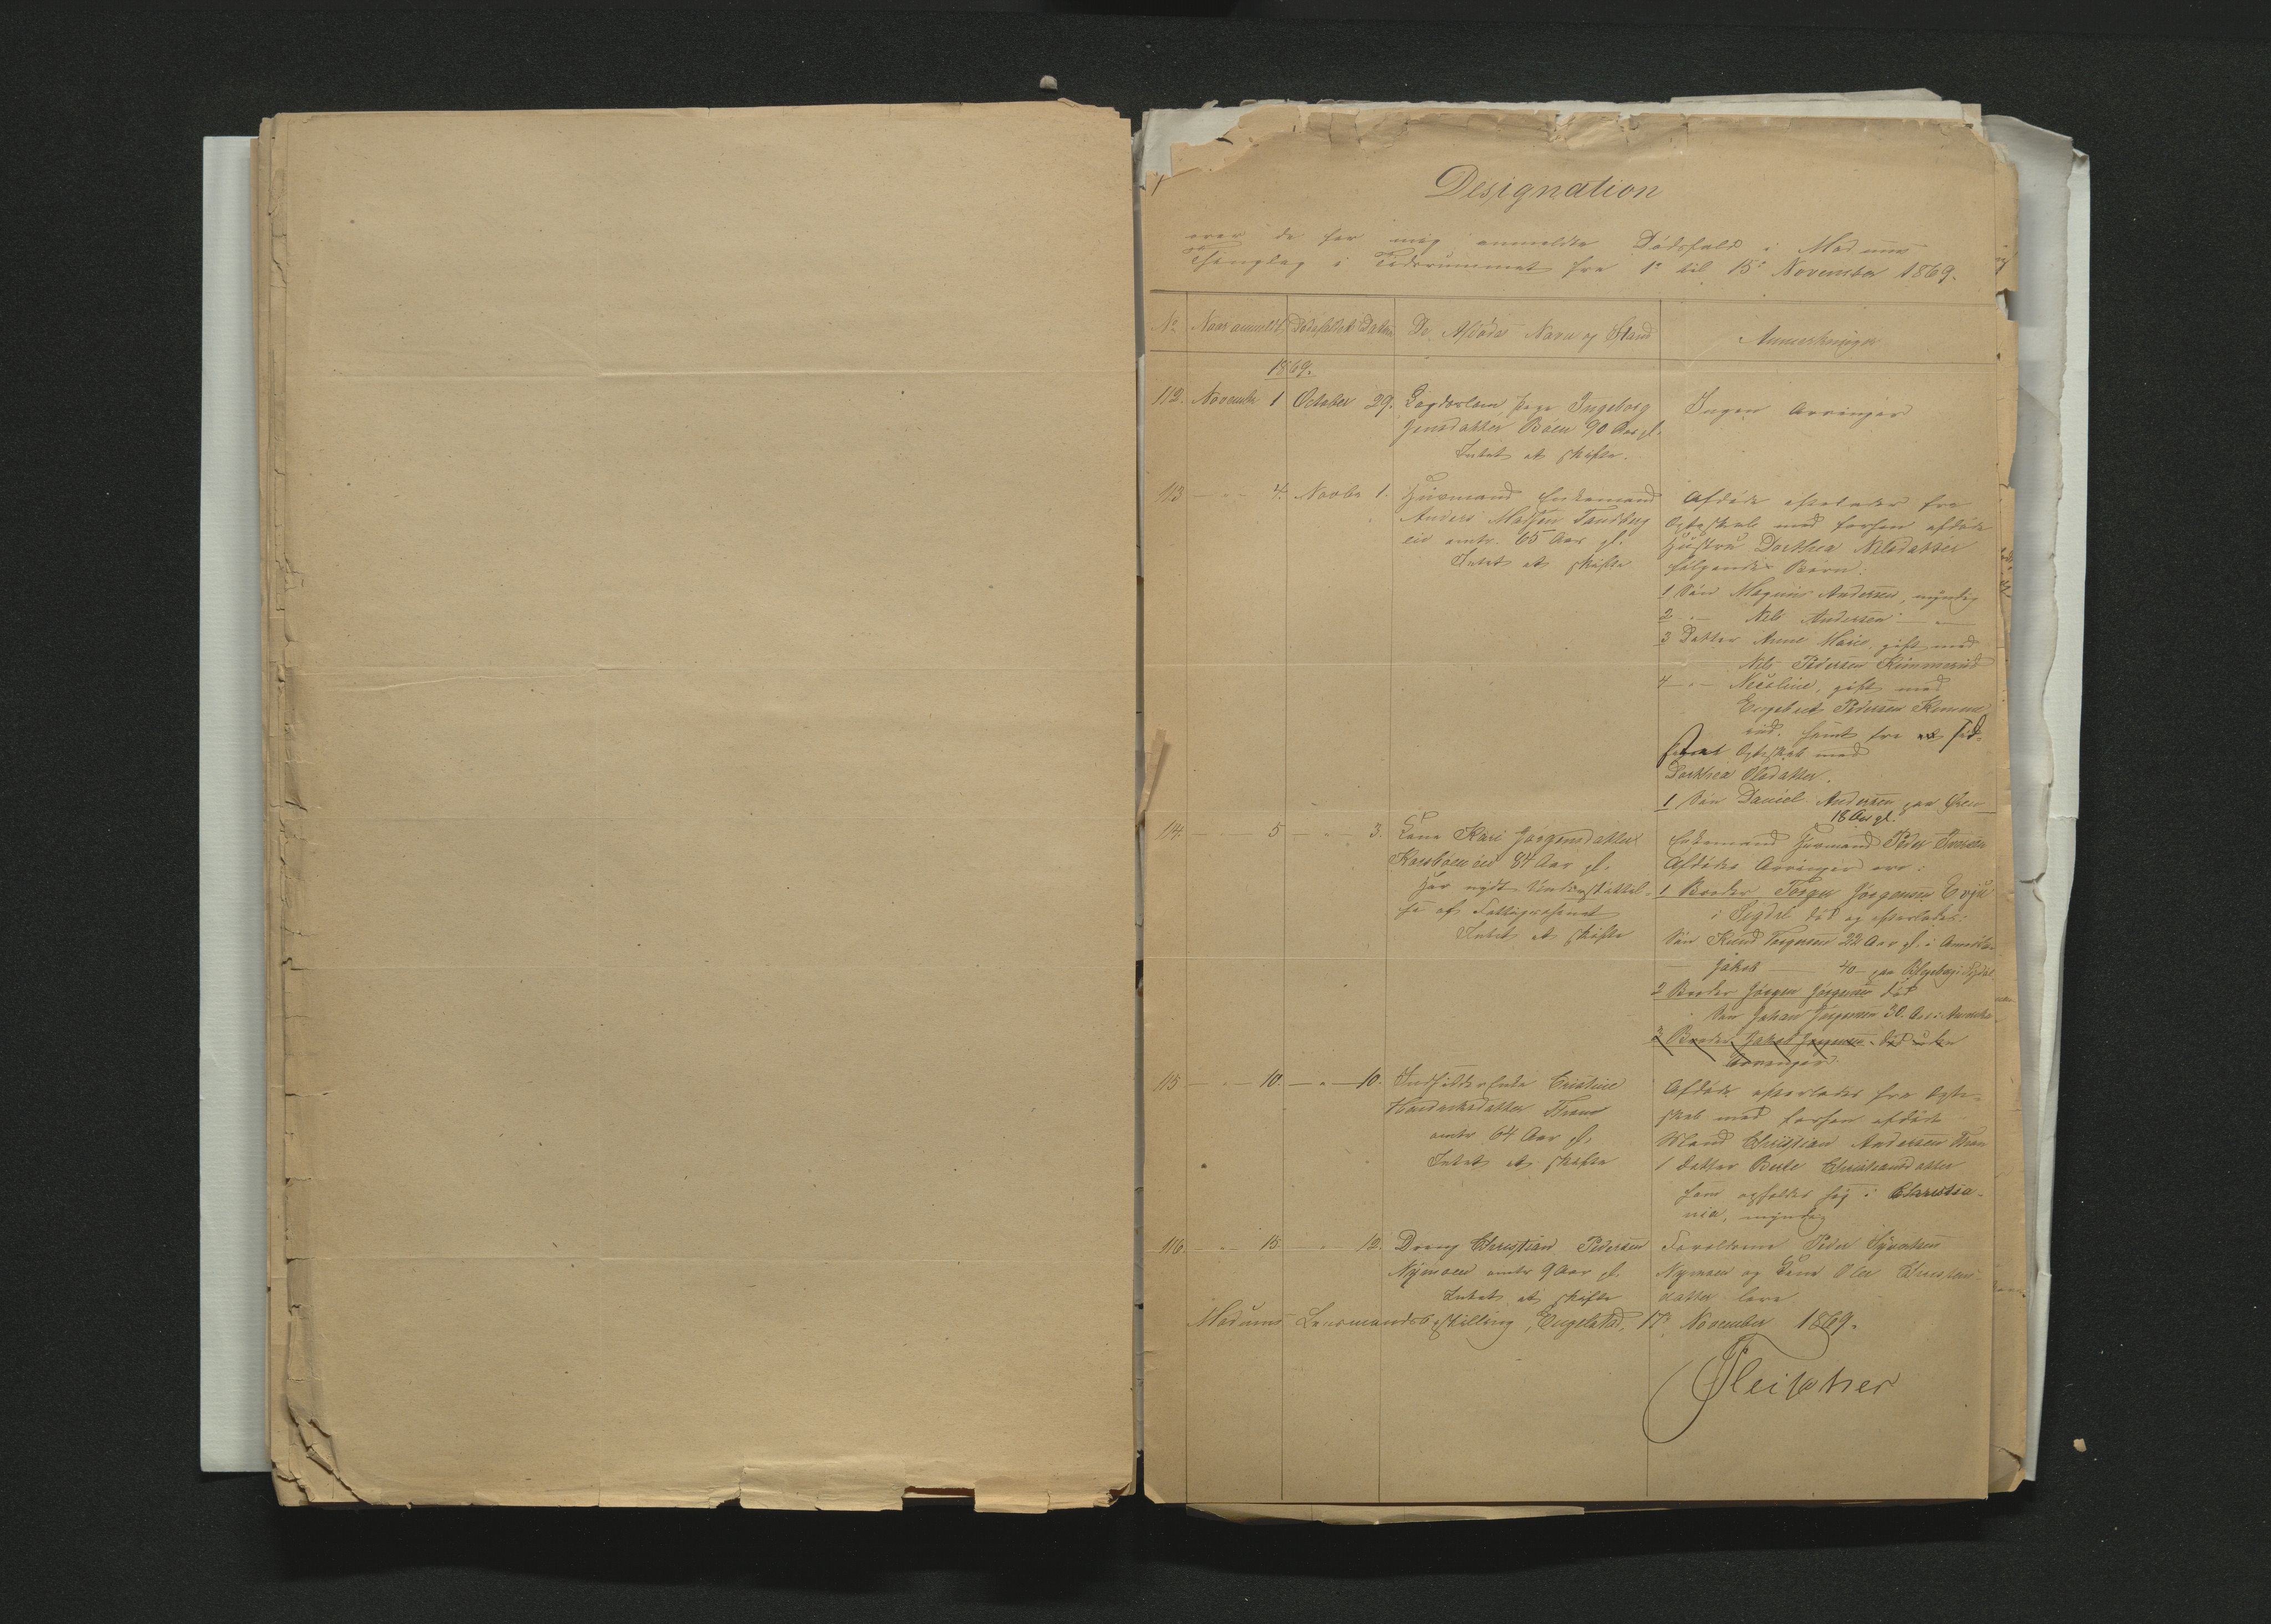 Designation
over de for mig anmeldte Dødsfald i Modums
Thinglag i Tidsrummet fra 1e til 15e November 1869.
No Naar anmeldt Dødsfaldets Datum De Afdødes Navn og Stand Anmerkninger
1869.
112. November 1 October 29. Ingeborg
Jensdatter Böen 90 Aar gl.
Intet at skifte.
Ingen Arvinger
113 — " — 4. Novbr 1. Husmand Enkemand
Anders Madsen Tandberg
eie omtr. 65 Aar gl.
Intet at skifte
Afdøde efterlader fra
Egteskab med forhen afdøde
Hustru Dorthea Nilsdatter
følgende Børn:
1 Søn Magnus Andersen, myndig
2 — " — Nels Andersen — " —
3 Datter Anne Marie gift med
Nels Pedersen Kimmerud
4 — " — Nicoline, gift med
Engebret Pedersen Kimme
rud, samt fra
Egteskab med
Dorthea Olsdatter.
1 Søn Daniel Andersen
18 Aar gl.
114. — " — 5 — " — 3. Kone Kari Jørgensdatter
Korsbøen eie 84 Aar gl.
Har nydt Understøttel-
se af Fattigvæsenet
Intet at skifte
Enkemand Husmand Peder Iversen
Afdødes Arvinger ere:
1 Broder Torger Jørgensen Evju
i Sigdal død og efterlader:
Søn Knud Torgersen 22 Aar gl. i Amerika
— Jakob — 40 —
2 Broder Jørgen Jørgensen død
Søn Johan Jørgensen 30 Aar i Amerika
3 Broder Jakob Jørgensen død uden
Arvinger.
115 — " — 10. — " — 10. Enke Cristine
Hendriksdatter Thran
omtr 64 Aar gl.
Intet at skifte
Afdøde efterlader fra Egte-
skab med forhen afdøde
Mand Christian Andersen Thran
1 Datter Berte Christiansdatter
som opholder sig i Christia-
nia, myndig
116. — " — 15 — " — 12. Dreng Christian Pedersen
Nymoen omtr 9 Aar gl.
Intet at skifte
Forældrene Peder
Nymoen og Kone Olea Christens-
datter leve
Modums Lensmandsbestilling, Engelstad, 17e November 1869.
Fleischer